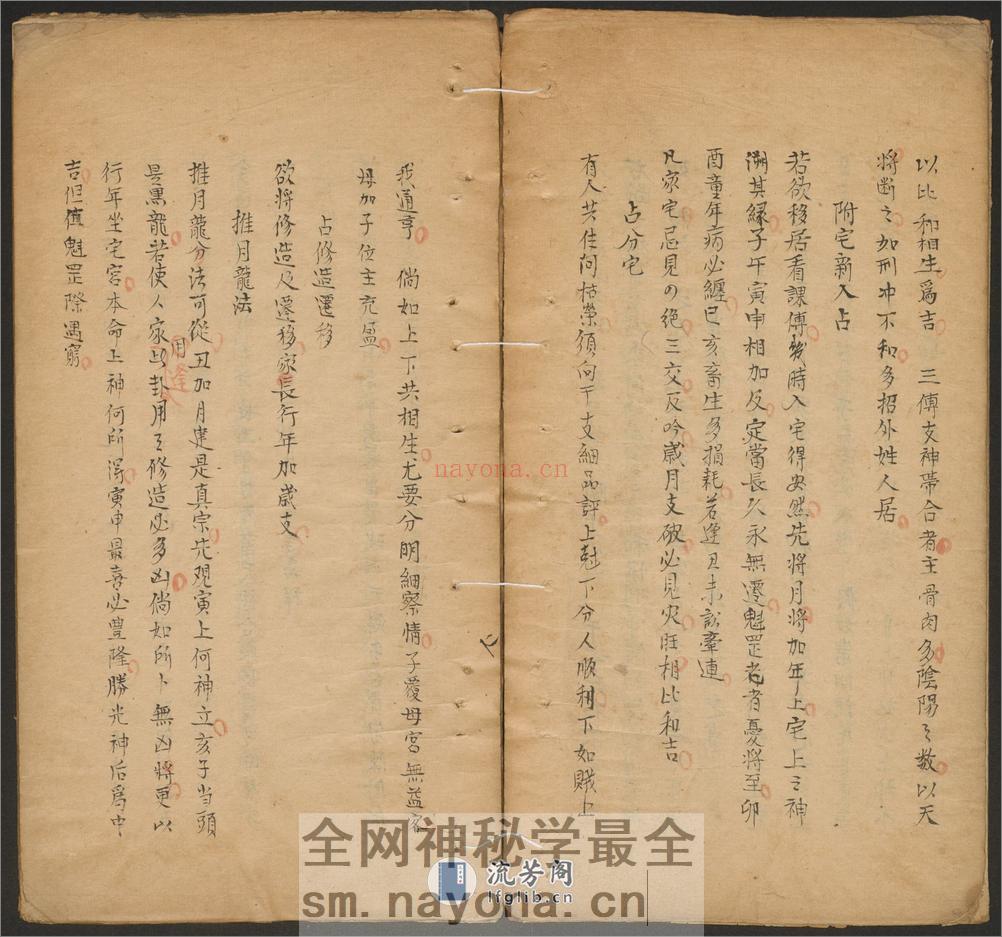 以比和相生爲吉 三傳支神帶合者主骨肉多陰陽之數以天
將斷之如刑冲不和多招外姓人居
附宅新入占
若欲移居看課傳幾時入宅得安然先將月將加年上宅上之神
溯其緣子午寅申相加反定當長久永無遷魁罡老者憂將至卯
酉童年病必纏巳亥畜生多損耗若逢丑未訟牽連
凡家宅忌見四絕三交反吟歲月支破必見灾旺相比和吉
占分宅
有人共住问枯榮須向干支細品評上尅下分人順利下如賊上
我通亨 倘如上下共相生尤要分明細察情子愛母宮無益客
母加子位主充盈
占修造遷移
欲將修造及遷移家長行年加歲支
推月龍法
推月龍分法可從丑加月建是真宗先观寅上何神立亥子当頭
是黑龍若使人家占卦用之修造必多凶倘如所卜無凶將更以
用逢
行年坐宅宮本命上神何所得寅申最喜必豊隆勝光神后爲中
吉但值魁罡際遇窮
nayona.cn
全网神秘学最全
流芳阁
lfglib.cn
sm.nayona.cn